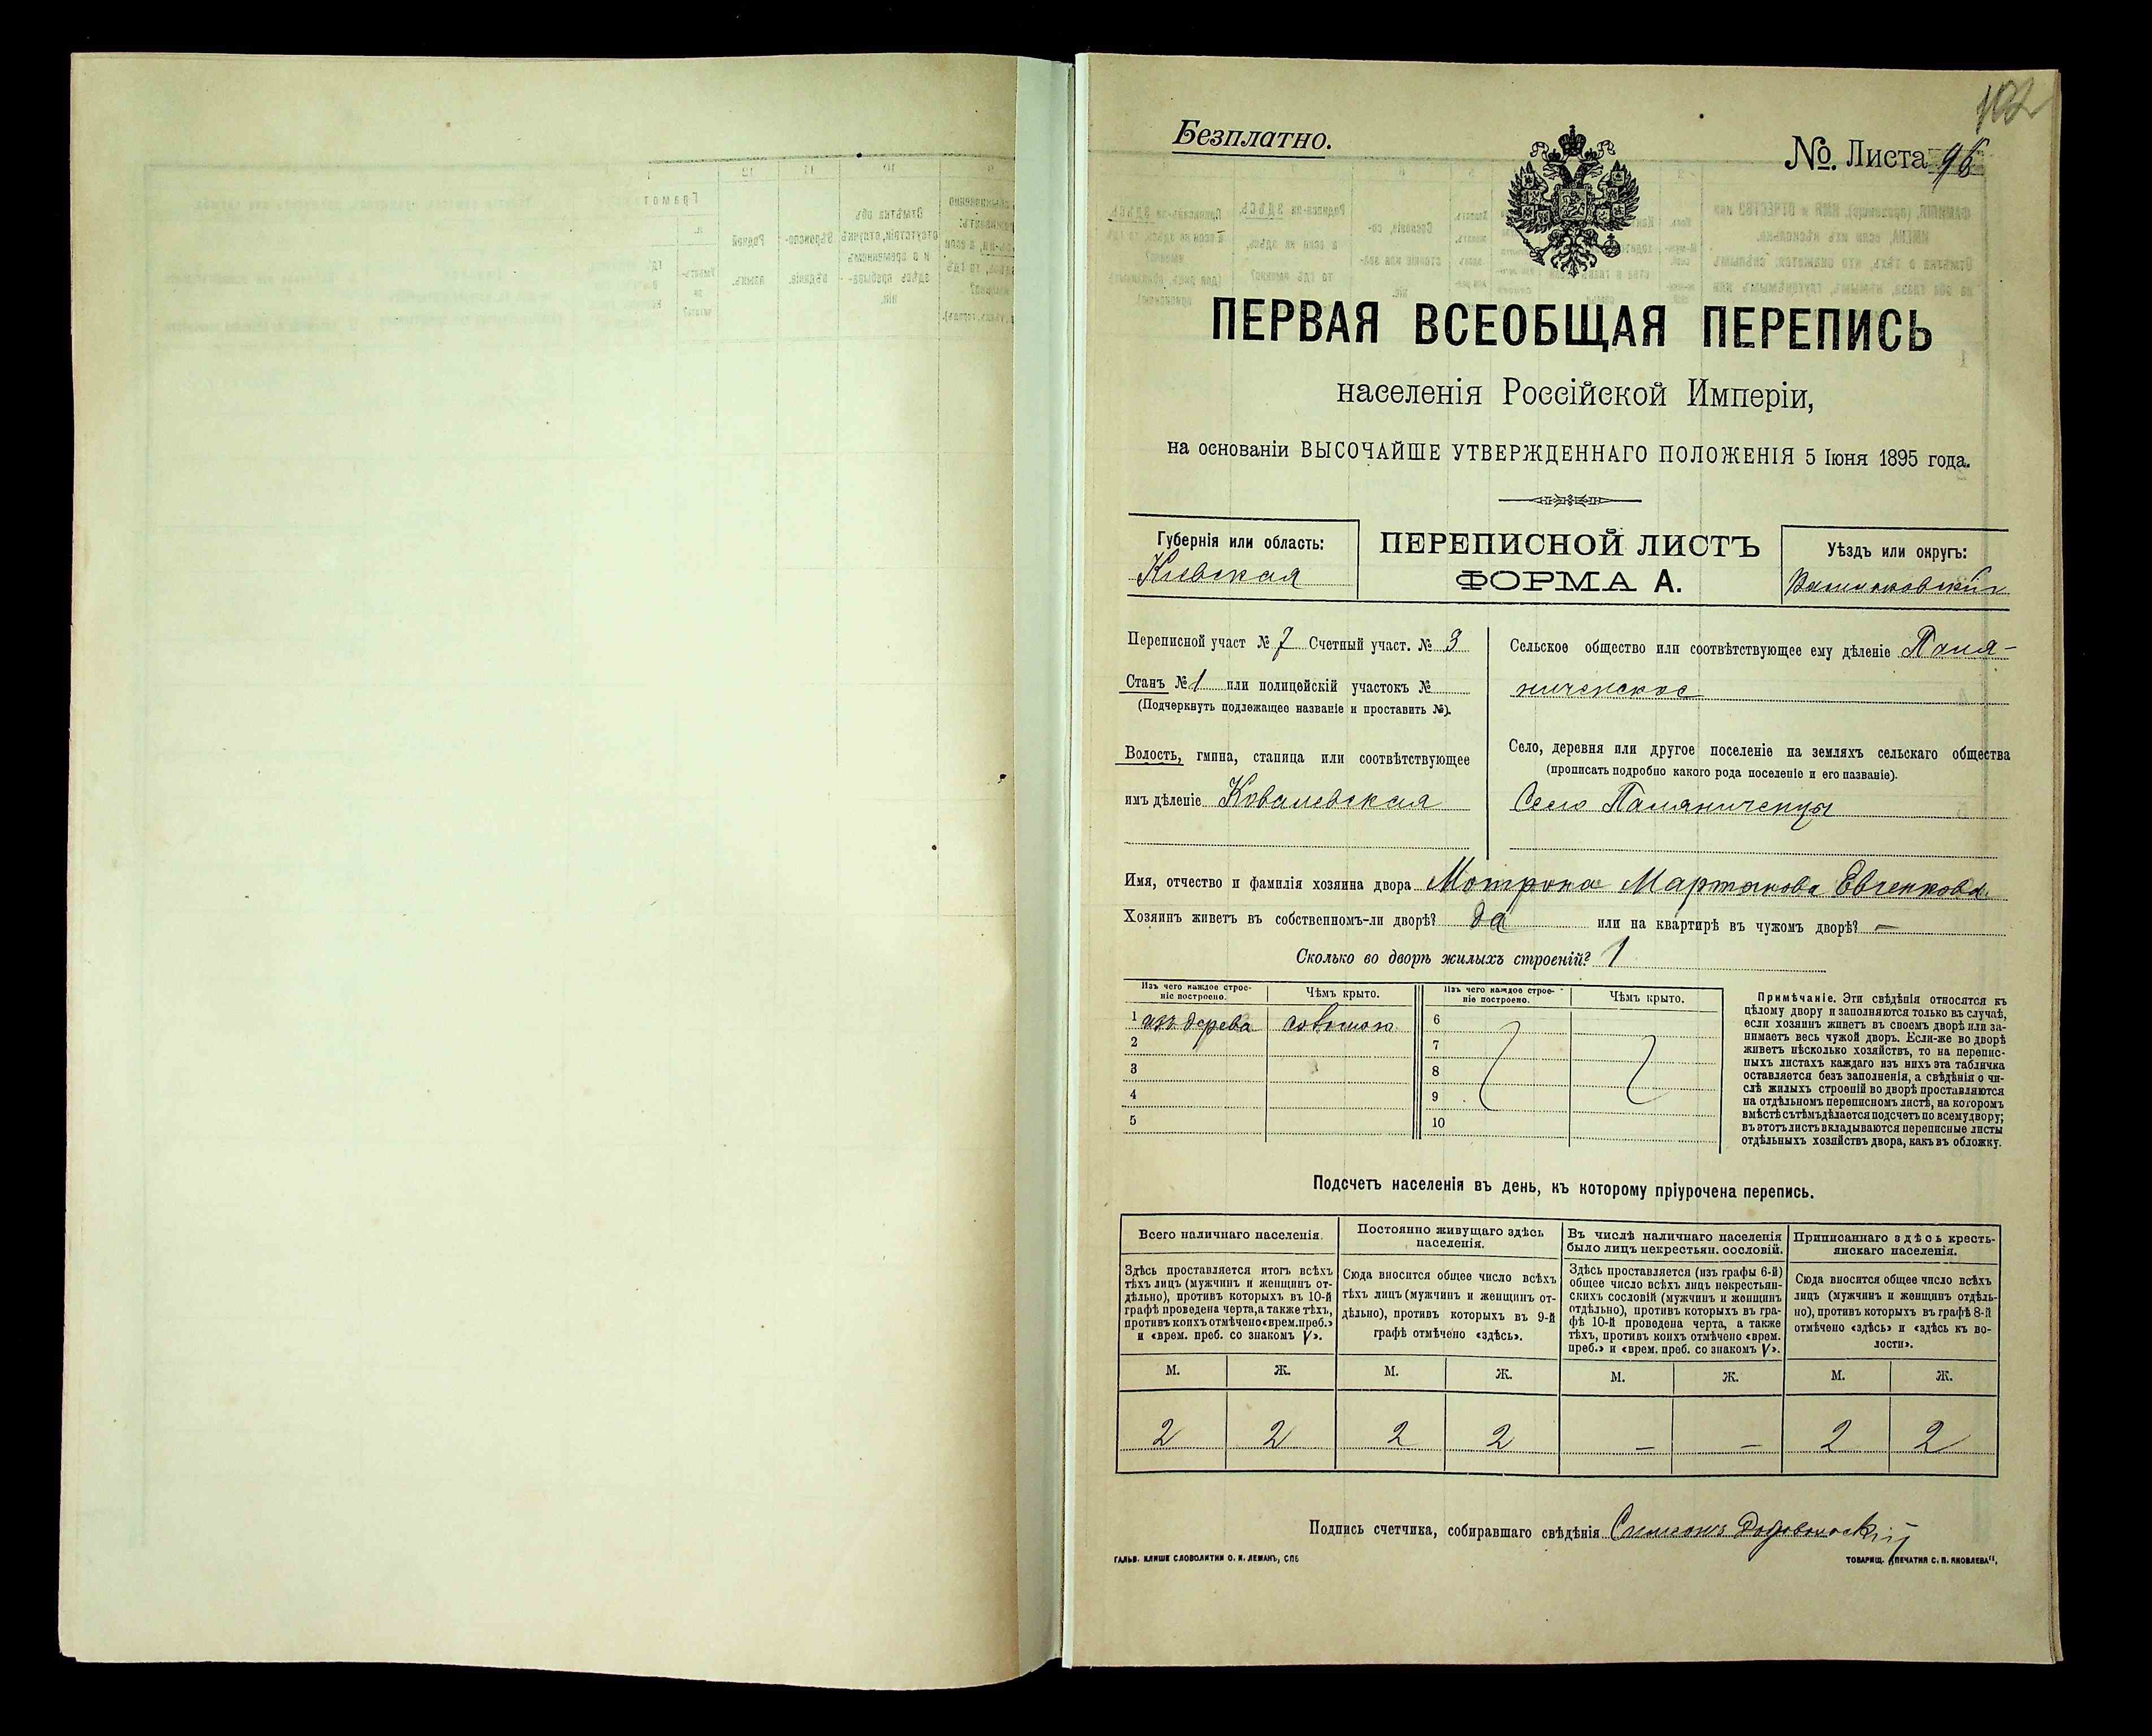 102
Безплатно.
№. Листа 96
ПЕРВАЯ ВСЕОБЩАЯ ПЕРЕПИСЬ
населенія Россійской Имперіи,
на основаніи ВЫСОЧАЙШЕ УТВЕРЖДЕННАГО ПОЛОЖЕНІЯ 5 Іюня 1895 года.
Губернія или область:
Кіевская
ПЕРЕПИСНОЙ ЛИСТЪ
ФОРМА А.
Уѣздъ или округъ:
Переписной участ № 7 Счетный участ. № 3
Станъ № 1 или полицейскій участокъ №
(Подчеркнуть подлежащее названіе и проставить №).
Волость, гмина, станица или соотвѣтствующее
имъ дѣленіе Ковалевская
Сельское общество или соотвѣтствующее ему дѣленіе Паля-
ниченское
Село, деревня или другое поселеніе на земляхъ сельскаго общества
(прописать подробно какого рода поселеніе и его названіе).
Село Паляниченцы
Имя, отчество и фамилія хозяина двора Мотрона Мартынова Евченкова
Хозяинъ живетъ въ собственномъ-ли дворѣ? да или на квартирѣ въ чужомъ дворѣ? —
Сколько во дворѣ жилыхъ строеній? 1
Изъ чего каждое строе-
ніе построено.
Чѣмъ крыто.
Изъ чего каждое строе-
ніе построено.
Чѣмъ крыто.
1 изъ дерева соломою
2
3
4
5
6
7
8
9
10
Примѣчаніе. Эти свѣдѣнія относятся къ
цѣлому двору и заполняются только въ случаѣ,
если хозяинъ живетъ въ своемъ дворѣ или за-
нимаетъ весь чужой дворъ. Если-же во дворѣ
живетъ нѣсколько хозяйствъ, то на перепис-
ныхъ листахъ каждаго изъ нихъ эта табличка
оставляется безъ заполненія, а свѣдѣнія о чи-
слѣ жилыхъ строеній во дворѣ проставляются
на отдѣльномъ переписномъ листѣ, на которомъ
вмѣстѣ съ тѣмъ дѣлается подсчетъ по всему двору;
въ этотъ листъ вкладываются переписные листы
отдѣльныхъ хозяйствъ двора, какъ въ обложку.
Подсчетъ населенія въ день, къ которому пріурочена перепись.
Всего наличнаго населенія.
Здѣсь проставляется итогъ всѣхъ
тѣхъ лицъ (мужчинъ и женщинъ от-
дѣльно), противъ которыхъ въ 10-й
графѣ проведена черта, а также тѣхъ,
противъ коихъ отмѣчено «врем. преб.»
и «врем. преб. со знакомъ V».
Постоянно живущаго здѣсь
населенія.
Сюда вносится общее число всѣхъ
тѣхъ лицъ (мужчинъ и женщинъ от-
дѣльно), противъ которыхъ въ 9-й
графѣ отмѣчено «здѣсь».
Въ числѣ наличнаго населенія
было лицъ некрестьян. сословій.
Здѣсь проставляется (изъ графы 6-й)
общее число всѣхъ лицъ некрестьян-
скихъ сословій (мужчинъ и женщинъ
отдѣльно), противъ которыхъ въ гра-
фѣ 10-й проведена черта, а также
тѣхъ, противъ коихъ отмѣчено «врем.
преб.» и «врем. преб. со знакомъ V».
Приписаннаго здѣсь кресть-
янскаго населенія.
Сюда вносится общее число всѣхъ
лицъ (мужчинъ и женщинъ отдѣль-
но), противъ которыхъ въ графѣ 8-й
отмѣчено «здѣсь» и «здѣсь къ во-
лости».
М. Ж. М. Ж. М. Ж. М. Ж.
2 2 2 2 — — 2 2
Подпись счетчика, собиравшаго свѣдѣнія
ГАЛЬВ. КЛИШЕ СЛОВОЛИТНИ О. И. ЛЕМАНЪ, СПБ
ТОВАРИЩ. „ПЕЧАТНЯ С. П. ЯКОВЛЕВА".